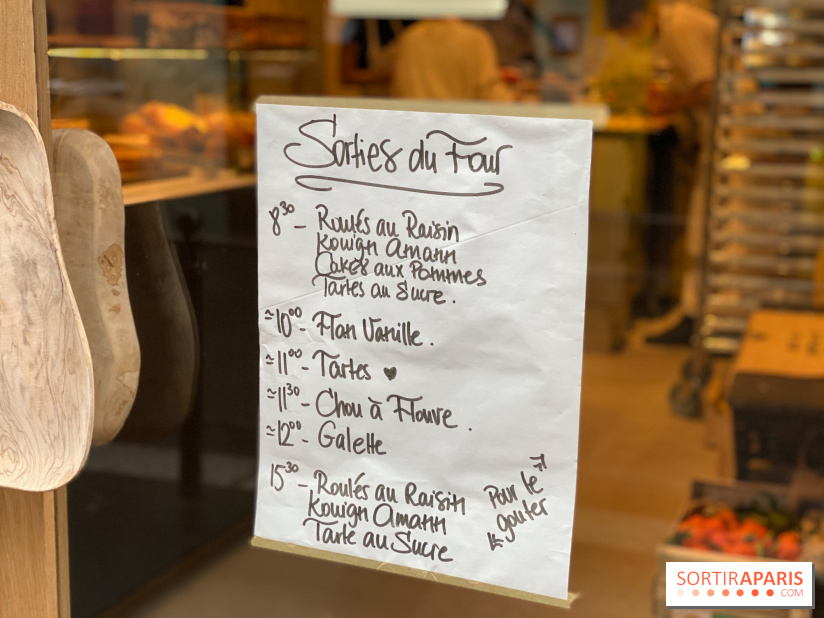 Sorties du Four
8³⁰ - Roulés au Raisin
Kouign Amann
Cakes aux Pommes
Tartes au Sucre.
≃10⁰⁰ - Flan Vanille.
≃11⁰⁰ - Tartes ♥
≃11³⁰ - Chou à Flouve.
≃12⁰⁰ - Galette
15³⁰ - Roulés au Raisin
Kouign Amann
Tarte au Sucre
Pour le
gouter
SORTIRAPARIS
.COM